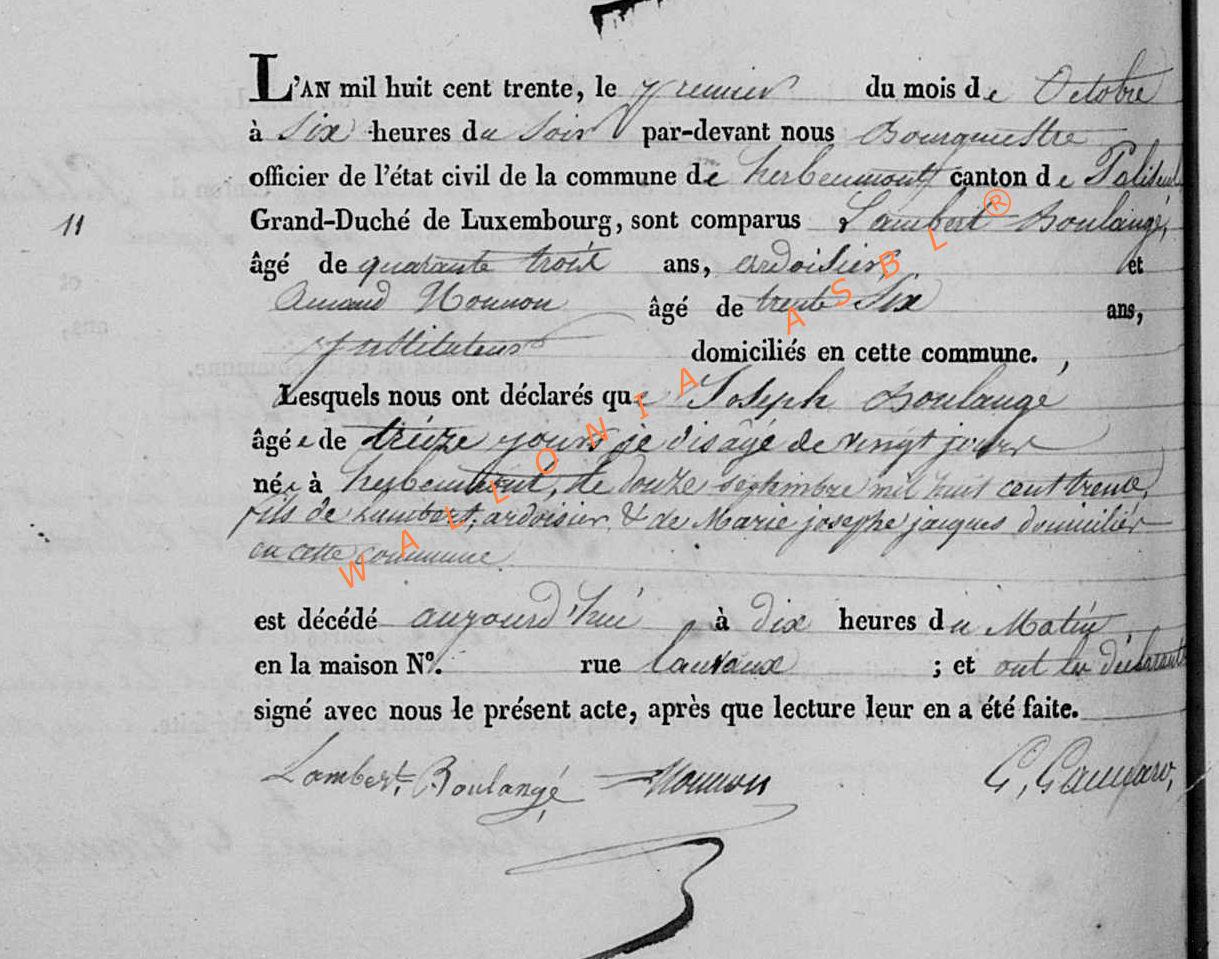 L'AN mil huit cent trente, le premier du mois de Octobre
à six heures du soir par-devant nous Bourquestre
officier de l'état civil de la commune de herbeumont canton de Paliseul
11
Grand-Duché de Luxembourg, sont comparus Lambert Boulangé,
âgé de quarante trois ans, ardoisier, et
Amand Nonnon âgé de trente six ans,
Instituteur domiciliés en cette commune.
Lesquels nous ont déclarés que Joseph Boulangé
âgé de treize jours je dis âgé de vingt jours
né à herbeumont, le douze septembre mil huit cent trente,
fils de Lambert, ardoisier & de Marie josephe jacques domiciliés
en cette commune
est décédé aujourd'hui à dix heures du Matin
en la maison N°. rue ; et ont les déclarants
signé avec nous le présent acte, après que lecture leur en a été faite.
Lambert Boulangé Nonnon
WALLONIA ASBL®